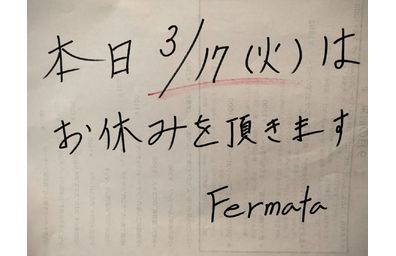 本日 3/17 (火) は
お休みを頂きます
Fermata